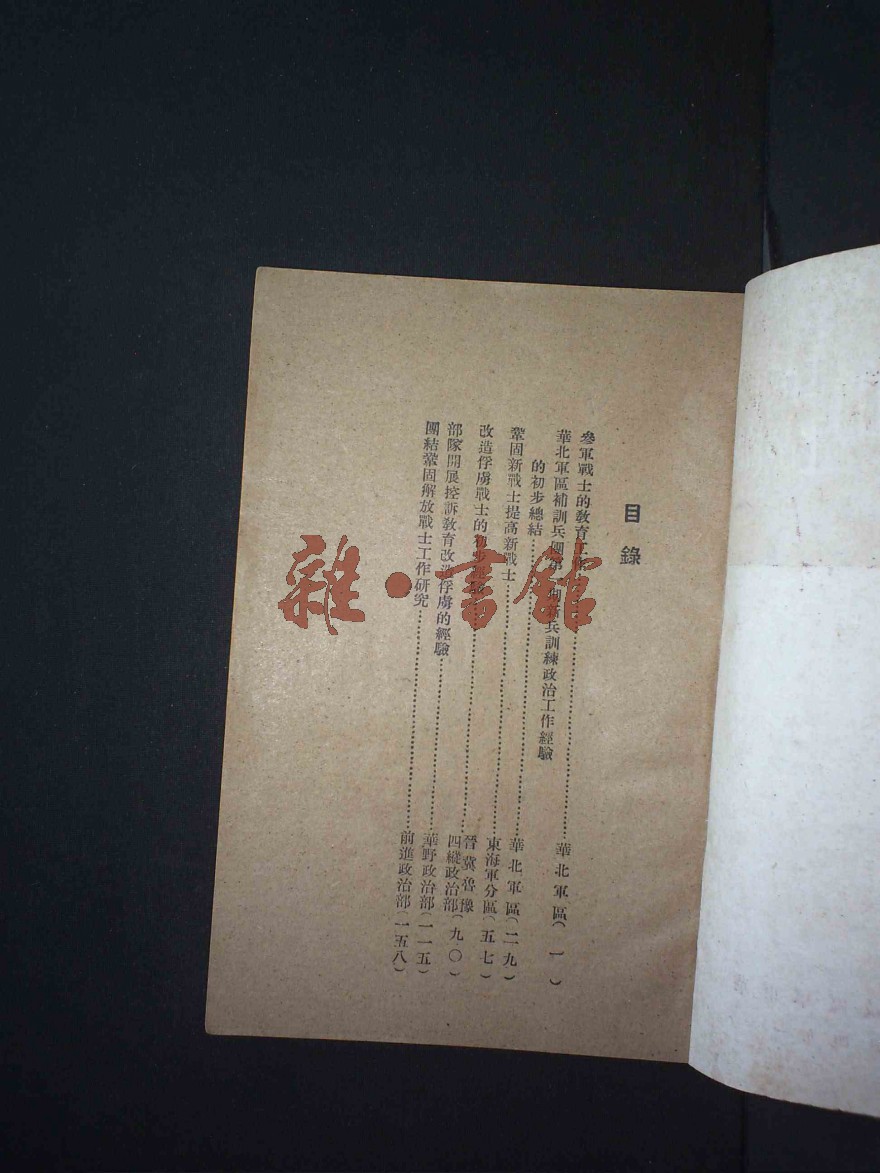 目錄
參軍戰士的教育工作……華北軍區(一)
華北軍區補訓兵團第 期新兵訓練政治工作經驗
的初步總結……華北軍區(二九)
鞏固新戰士提高新戰士……東海軍分區(五七)
改造俘虜戰士的初步經驗……晉冀魯豫四縱政治部(九〇)
部隊開展控訴教育改造俘虜的經驗……華野政治部(一一五)
團結鞏固解放戰士工作研究……前進政治部(一五八)
雜·書館